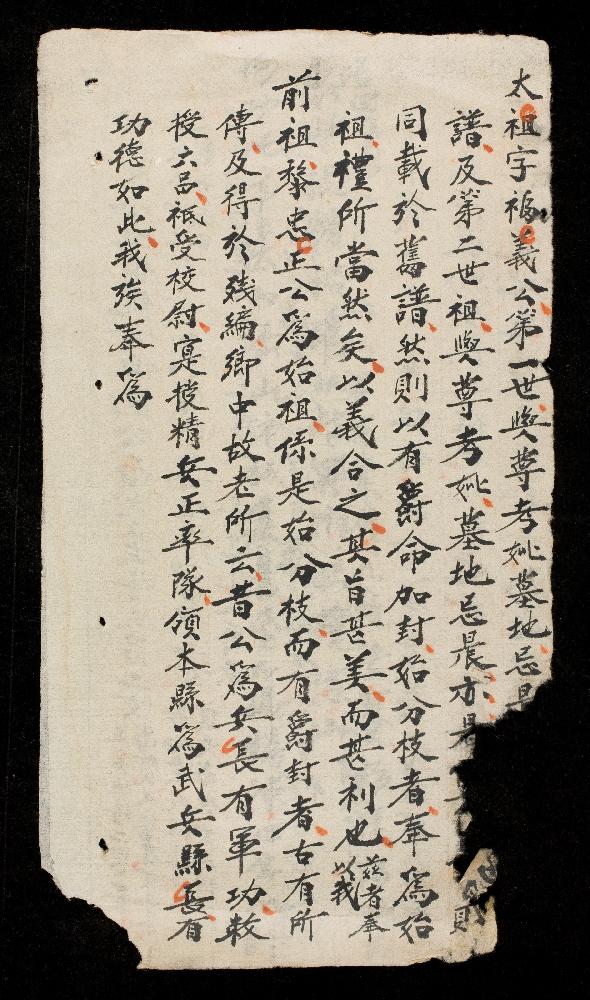 太祖字福義公第一世與尊考妣墓地忌
譜及第二世祖與尊考妣墓地忌晨亦
同載於舊譜然則以有爵命加封始分枝者奉爲始
祖禮所當然矣以義合之其旨甚美而甚利也茲者奉以我
前祖黎忠正公爲始祖係是始分枝而有爵封者古有所
傳及得於殘編鄉中故老所云昔公爲兵長有軍功敕
授六品祗受校尉寔授精兵正率隊領本縣爲武兵縣長有
功德如此我族奉爲